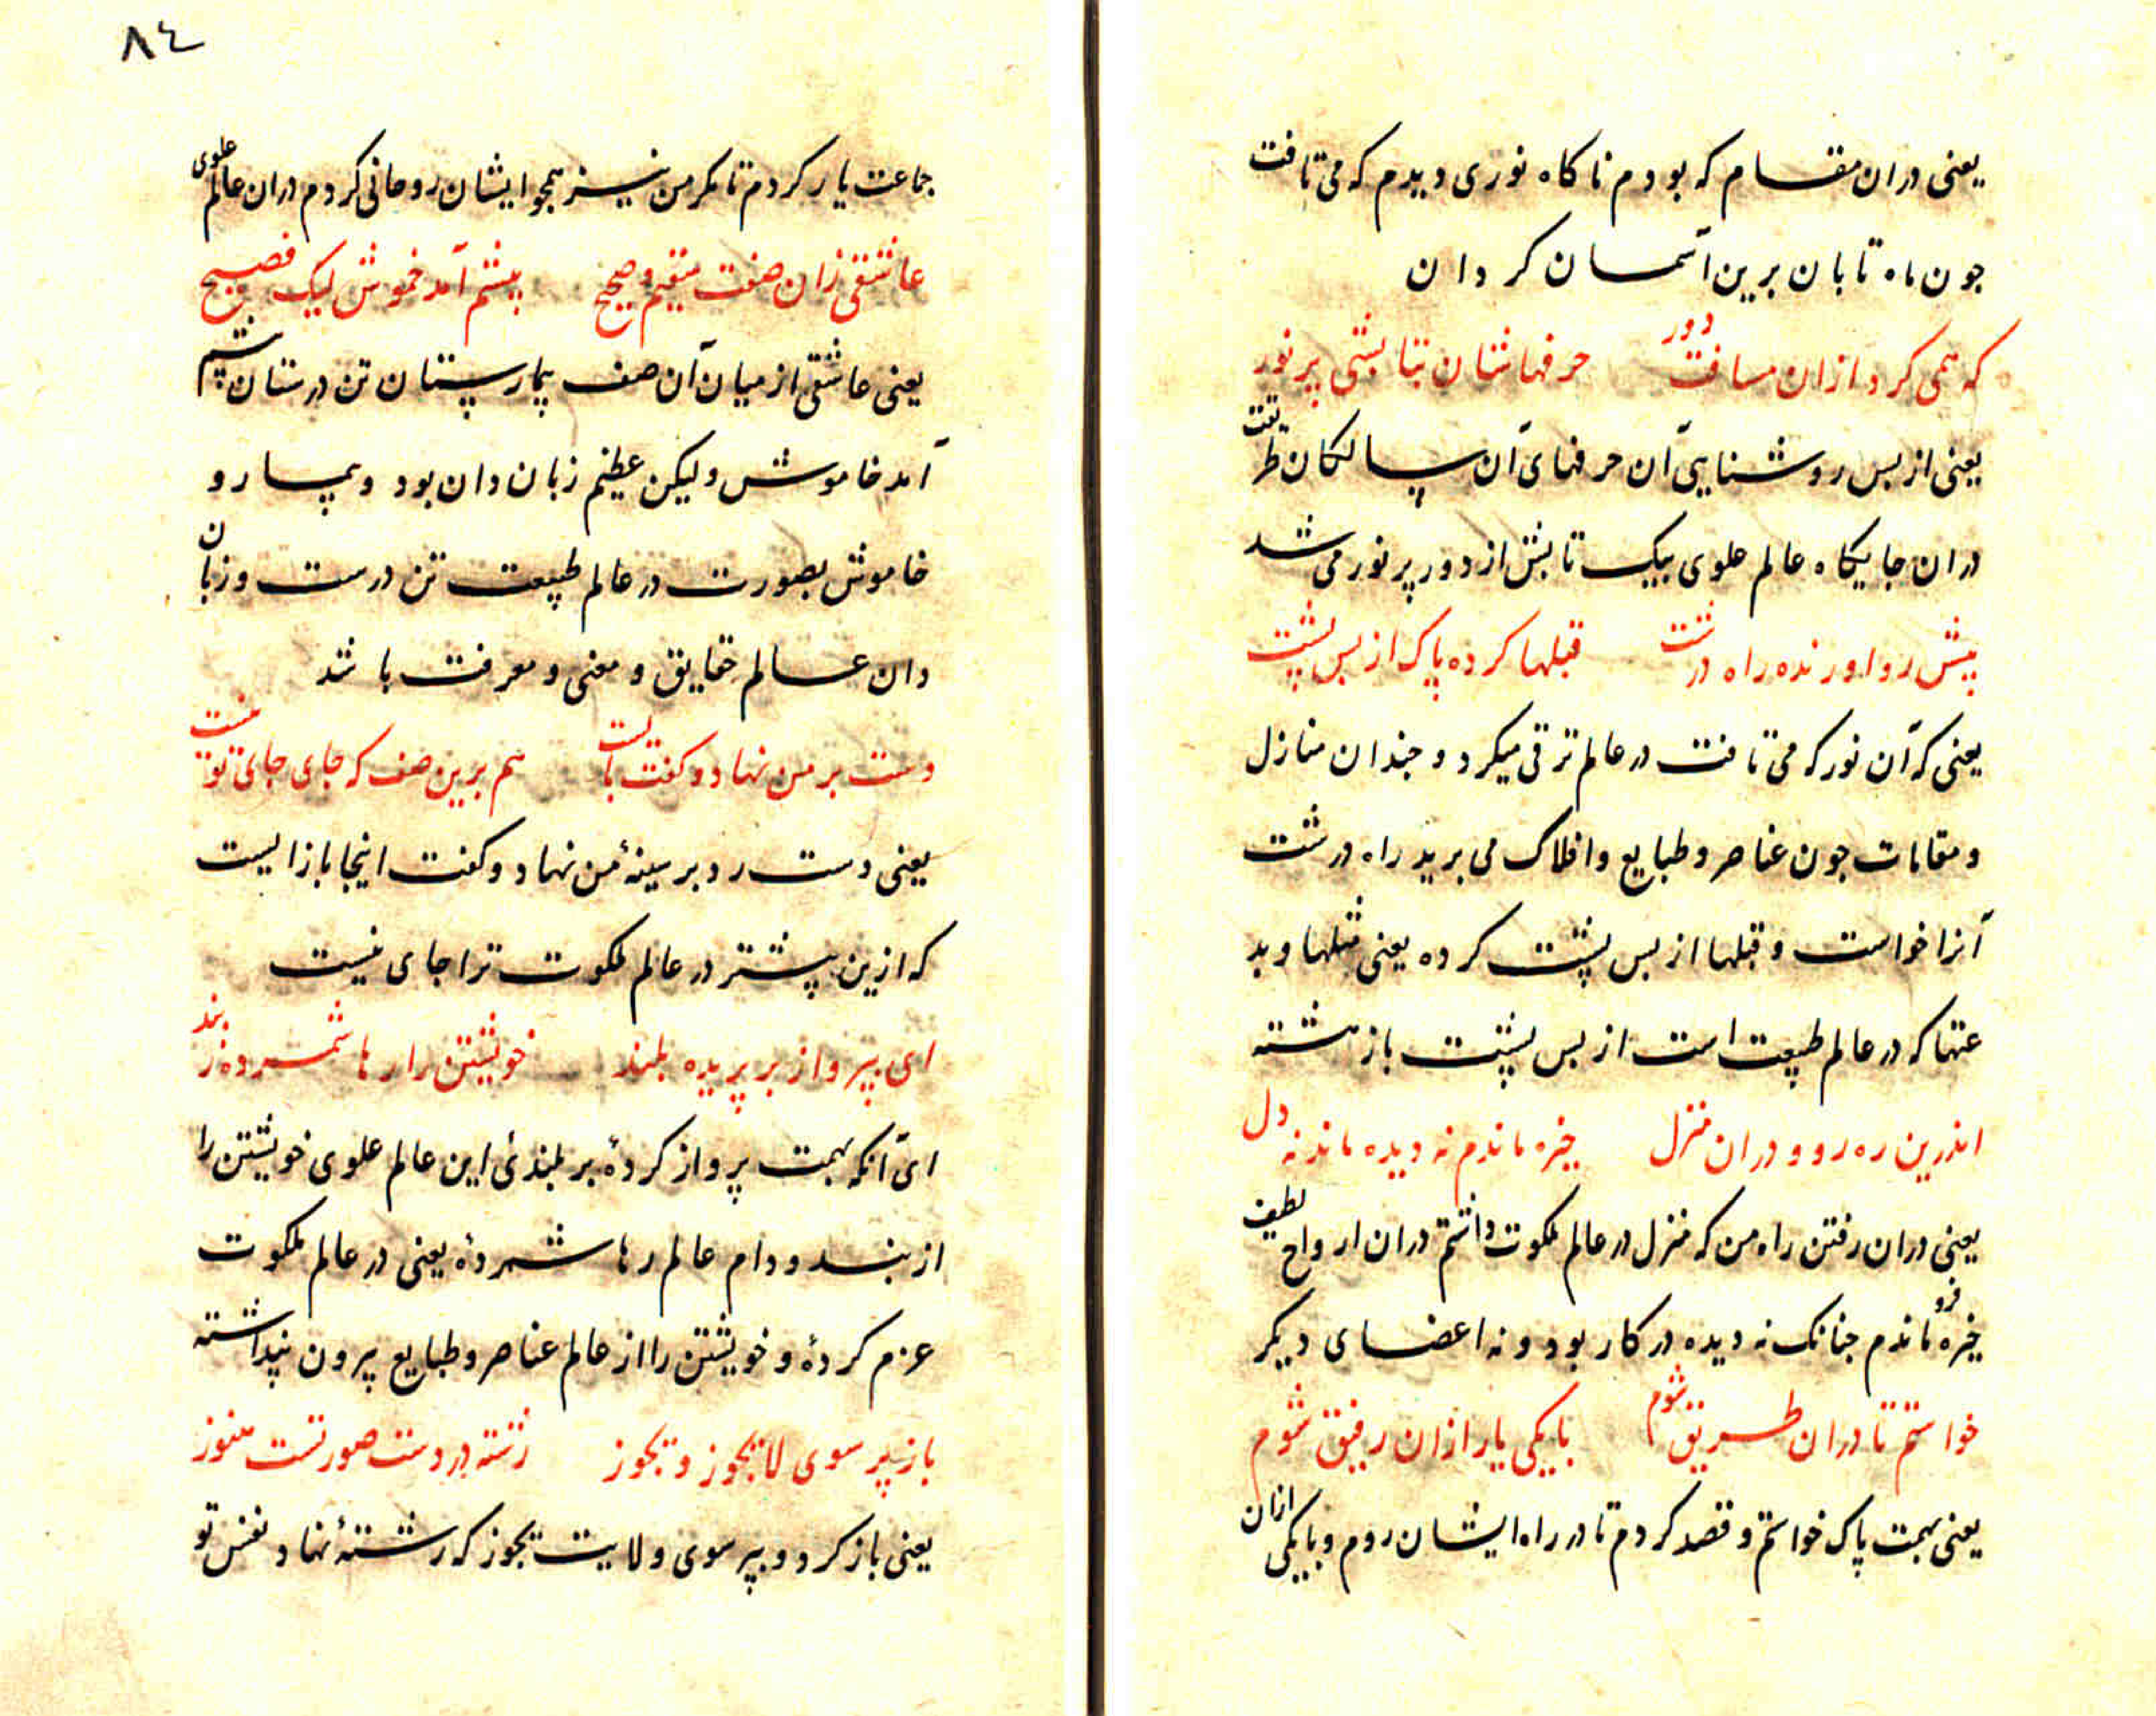 یعنی دران مقام که بودم ناکاه نوری دیدم که می تافت
جون ماه تابان برین آسمان کردان
که همی کرد ازان مسافت دور حرفهاشان بتابشی پر نور
یعنی از بس روشنایی آن حرفهای آن سالکان طریقت
دران جایکاه عالم علوی بیک تابش از دور پر نور می شد
پیش رو اورنده راه درشت قبلها کرده پاک از پس پشت
یعنی که آن نور که می تافت در عالم ترقی میکرد و جندان منازل
و مقامات جون عناصر و طبایع و افلاک می برید راه درشت
آنرا خواست و قبلها از پس پشت کرده یعنی قبلها و بد
عتها که در عالم طبیعت است از پس پشت باز هشته
اندرین ره رو و دران منزل خیره ماندم نه دیده ماند نه دل
یعنی دران رفتن راه من که منزل در عالم ملکوت داشتم دران ارواح لطیف
خیره فرو ماندم جنانک نه دیده در کار بود و نه اعضای دیکر
خواستم تا دران طریق شوم با یکی یار ازان رفیق شوم
یعنی بهمت پاک خواستم و قصد کردم تا در راه ایشان روم و با یکی ازان
٨٤
جماعت یار کردم تا مکر من نیز همجو ایشان روحانی کردم دران عالم علوی
عاشقی زان صفت سقیم و صحیح پیشم آمد خموش لیک فصیح
یعنی عاشقی از میان آن صف بیمارستان تن درستان پیشم
آمد خاموش ولیکن عظیم زبان دان بود و بیمار و
خاموش بصورت در عالم طبیعت تن درست و زبان
دان عالم حقایق و معنی و معرفت باشد
دست بر من نهاد و کفت بایست هم برین صف که جای جای تو نیست
یعنی دست رد بر سینهٔ من نهاد و کفت اینجا باز ایست
که ازین پیشتر در عالم ملکوت ترا جای نیست
ای بپرواز بر پریده بلند خویشتن را رها شمرده ز بند
ای آنکه بهمت پرواز کردهٔ بر بلندیٔ این عالم علوی خویشتن را
از بند و دام عالم رها شمردهٔ یعنی در عالم ملکوت
عزم کردهٔ و خویشتن را از عالم عناصر و طبایع بیرون پنداشته
باز پر سوی لایجوز و یجوز رشته در دست صورتست هنوز
یعنی باز کرد و بپر سوی ولایت یجوز که رشتهٔ نهاد نفس تو